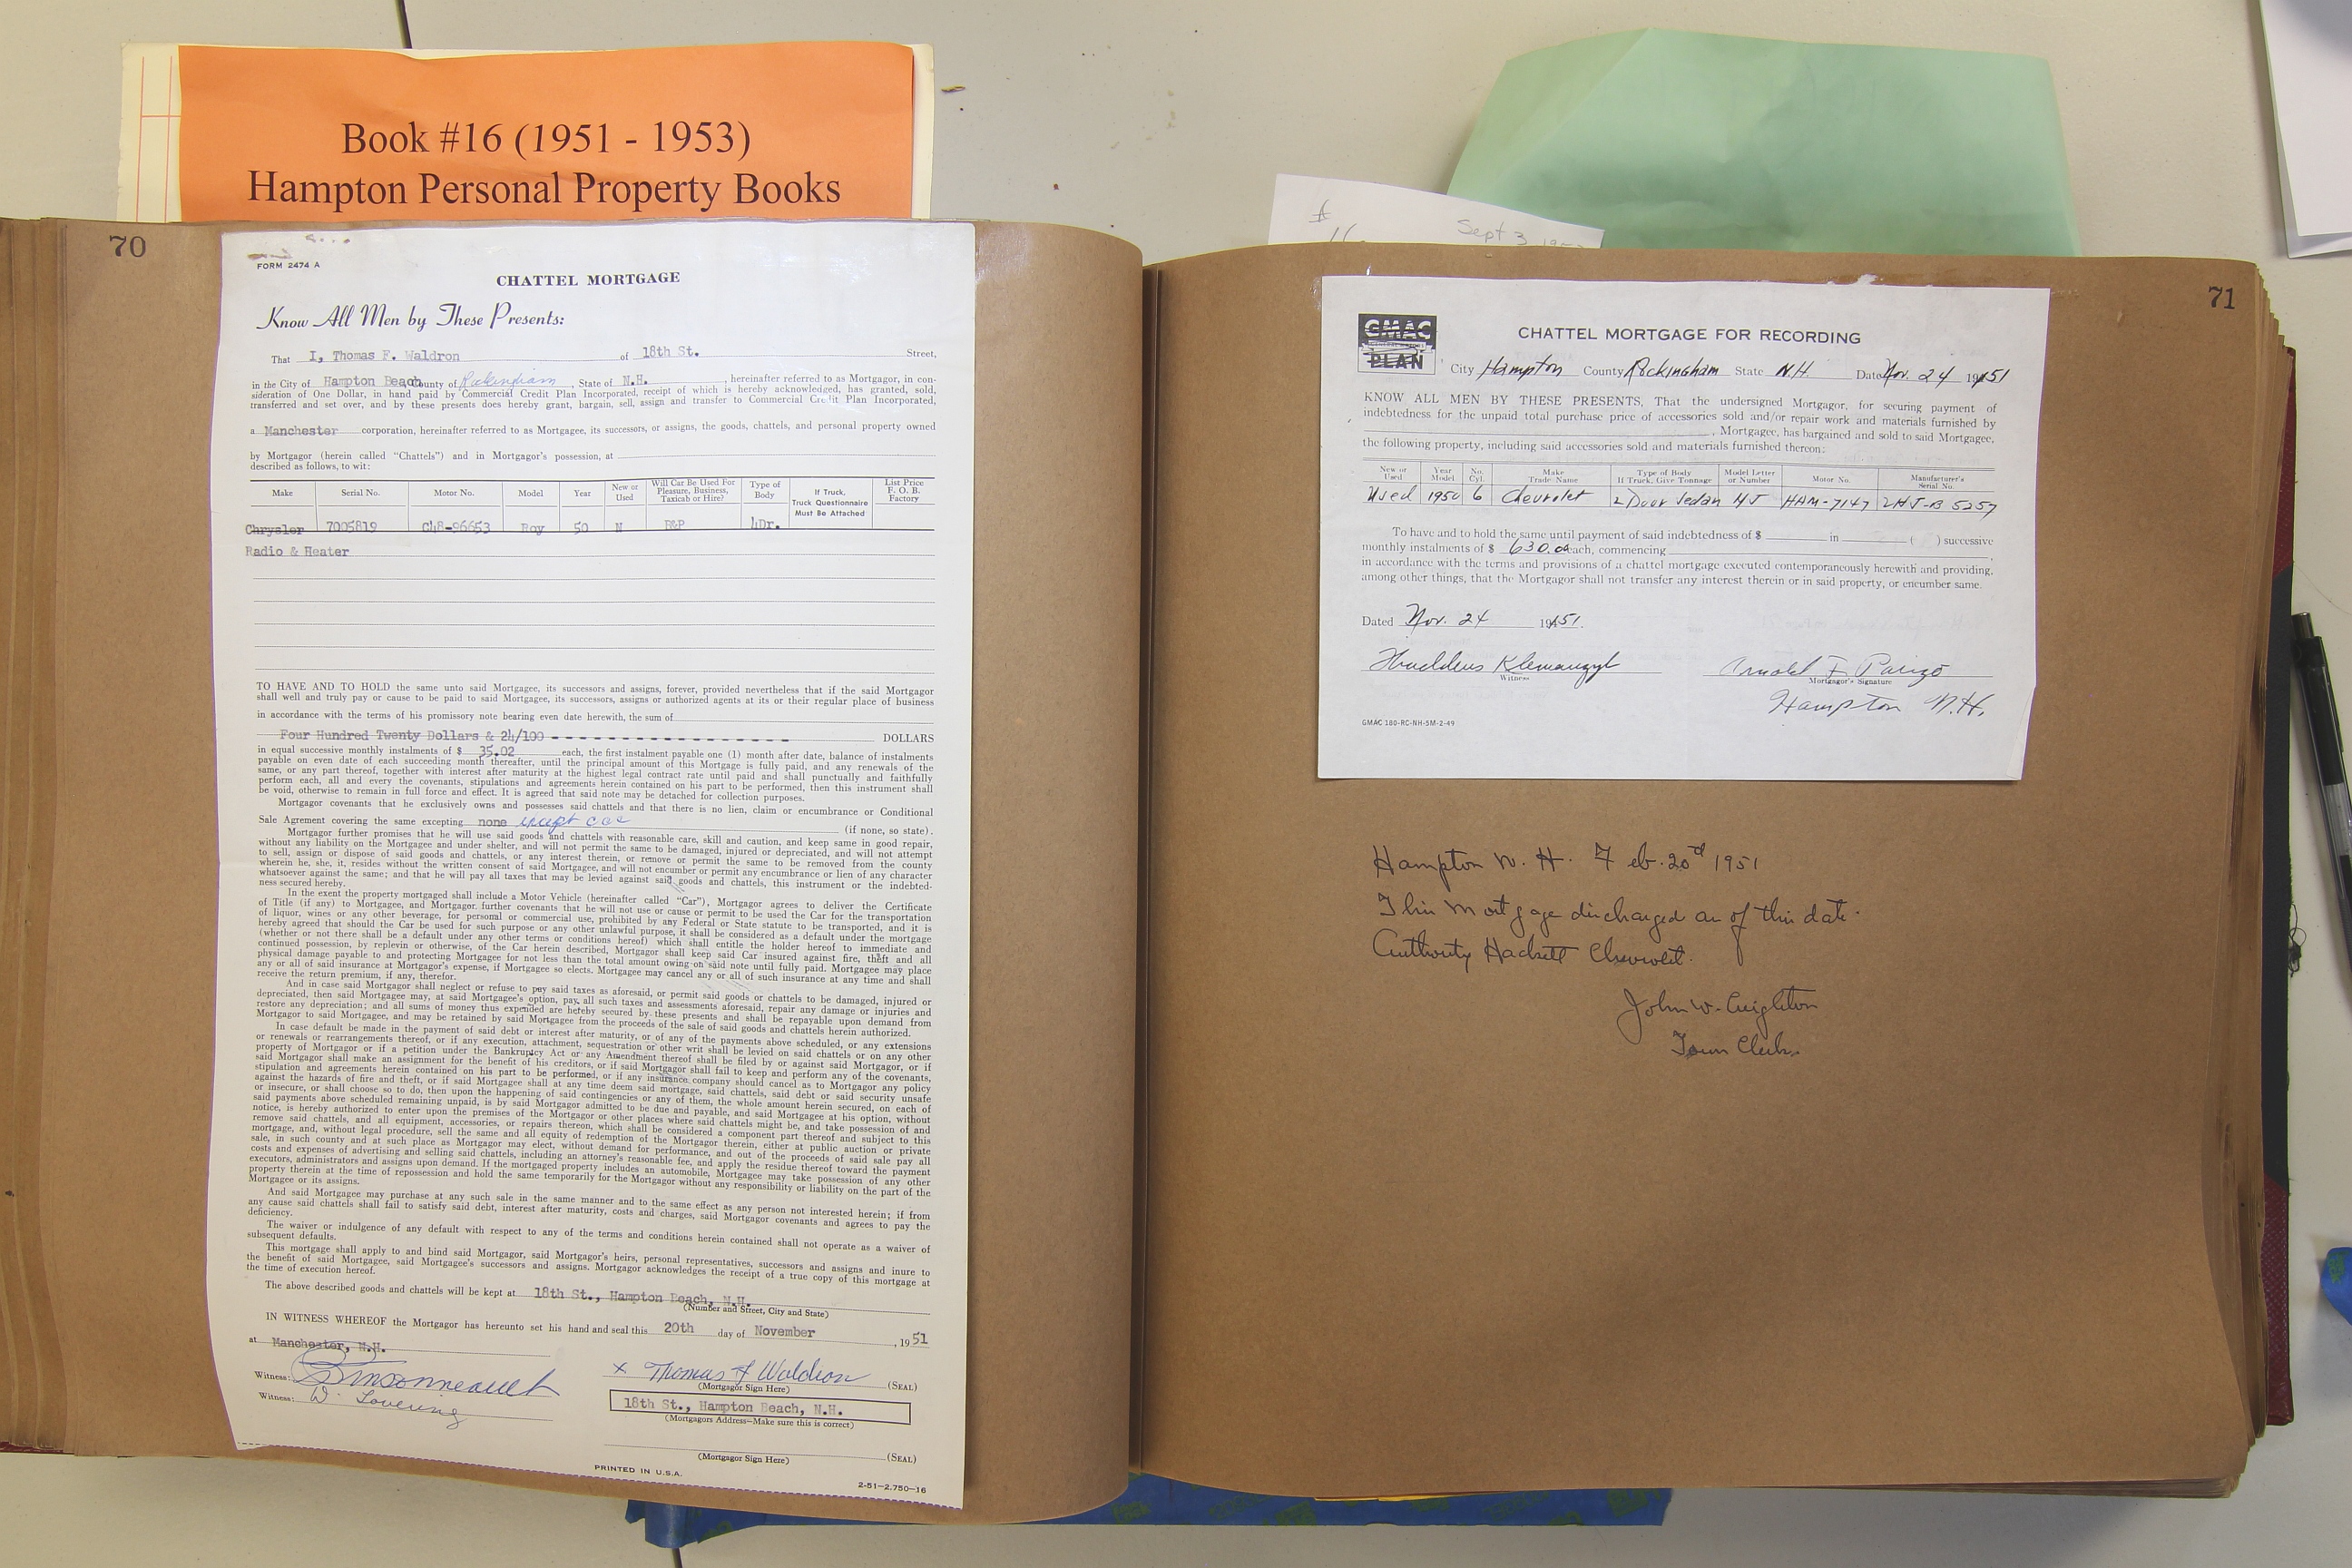 Book #16 (1951 - 1953)
Hampton Personal Property Books
70
FORM 2474 A
CHATTEL MORTGAGE
Know All Men by These Presents:
That I, Thomas F. Waldron of 18th St. Street,
in the City of Hampton Beach County of Rockingham, State of N.H., hereinafter referred to as Mortgagor, in con-
sideration of One Dollar, in hand paid by Commercial Credit Plan Incorporated, receipt of which is hereby acknowledged, has granted, sold,
transferred and set over, and by these presents does hereby grant, bargain, sell, assign and transfer to Commercial Credit Plan Incorporated,
a Manchester corporation, hereinafter referred to as Mortgagee, its successors, or assigns, the goods, chattels, and personal property owned
by Mortgagor (herein called "Chattels") and in Mortgagor's possession, at
described as follows, to wit:
Make Serial No. Motor No. Model Year New or Used Will Car Be Used For Pleasure, Business, Taxicab or Hire? Type of Body If Truck, Truck Questionnaire Must Be Attached List Price F. O. B. Factory
Chrysler 7005819 C48-96653 Roy 50 N B&P 4Dr.
Radio & Heater
TO HAVE AND TO HOLD the same unto said Mortgagee, its successors and assigns, forever, provided nevertheless that if the said Mortgagor
shall well and truly pay or cause to be paid to said Mortgagee, its successors, assigns or authorized agents at its or their regular place of business
in accordance with the terms of his promissory note bearing even date herewith, the sum of
Four Hundred Twenty Dollars & 24/100 - - - - - - - - - - - - - - - - - DOLLARS
in equal successive monthly instalments of $ 35.02 each, the first instalment payable one (1) month after date, balance of instalments
payable on even date of each succeeding month thereafter, until the principal amount of this Mortgage is fully paid, and any renewals of the
same, or any part thereof, together with interest after maturity at the highest legal contract rate until paid and shall punctually and faithfully
perform each, all and every the covenants, stipulations and agreements herein contained on his part to be performed, then this instrument shall
be void, otherwise to remain in full force and effect. It is agreed that said note may be detached for collection purposes.
Mortgagor covenants that he exclusively owns and possesses said chattels and that there is no lien, claim or encumbrance or Conditional
Sale Agreement covering the same excepting none except ccc (if none, so state).
Mortgagor further promises that he will use said goods and chattels with reasonable care, skill and caution, and keep same in good repair,
without any liability on the Mortgagee and under shelter, and will not permit the same to be damaged, injured or depreciated, and will not attempt
to sell, assign or dispose of said goods and chattels, or any interest therein, or remove or permit the same to be removed from the county
wherein he, she, it, resides without the written consent of said Mortgagee, and will not encumber or permit any encumbrance or lien of any character
whatsoever against the same; and that he will pay all taxes that may be levied against said goods and chattels, this instrument or the indebted-
ness secured hereby.
In the exent the property mortgaged shall include a Motor Vehicle (hereinafter called "Car"), Mortgagor agrees to deliver the Certificate
of Title (if any) to Mortgagee, and Mortgagor further covenants that he will not use or cause or permit to be used the Car for the transportation
of liquor, wines or any other beverage, for personal or commercial use, prohibited by any Federal or State statute to be transported, and it is
hereby agreed that should the Car be used for such purpose or any other unlawful purpose, it shall be considered as a default under the mortgage
(whether or not there shall be a default under any other terms or conditions hereof) which shall entitle the holder hereof to immediate and
continued possession, by replevin or otherwise, of the Car herein described, Mortgagor shall keep said Car insured against fire, theft and all
physical damage payable to and protecting Mortgagee for not less than the total amount owing on said note until fully paid. Mortgagee may place
any or all of said insurance at Mortgagor's expense, if Mortgagee so elects. Mortgagee may cancel any or all of such insurance at any time and shall
receive the return premium, if any, therefor.
And in case said Mortgagor shall neglect or refuse to pay said taxes as aforesaid, or permit said goods or chattels to be damaged, injured or
depreciated, then said Mortgagee may, at said Mortgagee's option, pay all such taxes and assessments aforesaid, repair any damage or injuries and
restore any depreciation; and all sums of money thus expended are hereby secured by these presents and shall be repayable upon demand from
Mortgagor to said Mortgagee, and may be retained by said Mortgagee from the proceeds of the sale of said goods and chattels herein authorized.
In case default be made in the payment of said debt or interest after maturity, or of any of the payments above scheduled, or any extensions
or renewals or rearrangements thereof, or if any execution, attachment, sequestration or other writ shall be levied on said chattels or on any other
property of Mortgagor or if a petition under the Bankruptcy Act or any Amendment thereof shall be filed by or against said Mortgagor, or if
said Mortgagor shall make an assignment for the benefit of his creditors, or if said Mortgagor shall fail to keep and perform any of the covenants,
stipulation and agreements herein contained on his part to be performed, or if any insurance company should cancel as to Mortgagor any policy
against the hazards of fire and theft, or if said Mortgagee shall at any time deem said mortgage, said chattels, said debt or said security unsafe
or insecure, or shall choose so to do, then upon the happening of said contingencies or any of them, the whole amount herein secured, on each of
said payments above scheduled remaining unpaid, is by said Mortgagor admitted to be due and payable, and said Mortgagee at his option, without
notice, is hereby authorized to enter upon the premises of the Mortgagor or other places where said chattels might be, and take possession of and
remove said chattels, and all equipment, accessories, or repairs thereon, which shall be considered a component part thereof and subject to this
mortgage, and, without legal procedure, sell the same and all equity of redemption of the Mortgagor therein, either at public auction or private
sale, in such county and at such place as Mortgagor may elect, without demand for performance, and out of the proceeds of said sale pay all
costs and expenses of advertising and selling said chattels, including an attorney's reasonable fee, and apply the residue thereof toward the payment
executors, administrators and assigns upon demand. If the mortgaged property includes an automobile, Mortgagee may take possession of any other
property therein at the time of repossession and hold the same temporarily for the Mortgagor without any responsibility or liability on the part of the
Mortgagee or its assigns.
And said Mortgagee may purchase at any such sale in the same manner and to the same effect as any person not interested herein; if from
any cause said chattels shall fail to satisfy said debt, interest after maturity, costs and charges, said Mortgagor covenants and agrees to pay the
deficiency.
The waiver or indulgence of any default with respect to any of the terms and conditions herein contained shall not operate as a waiver of
subsequent defaults.
This mortgage shall apply to and bind said Mortgagor, said Mortgagor's heirs, personal representatives, successors and assigns and inure to
the benefit of said Mortgagee, said Mortgagee's successors and assigns. Mortgagor acknowledges the receipt of a true copy of this mortgage at
the time of execution hereof.
The above described goods and chattels will be kept at 18th St., Hampton Beach, N.H.
(Number and Street, City and State)
IN WITNESS WHEREOF the Mortgagor has hereunto set his hand and seal this 20th day of November, 1951
at Manchester, N.H.
Witness: X Thomas F Waldron (SEAL)
(Mortgagor Sign Here)
Witness: W. Lovering
18th St., Hampton Beach, N.H.
(Mortgagors Address—Make sure this is correct)
(SEAL)
(Mortgagor Sign Here)
PRINTED IN U.S.A.
2-51—2,750—16
#
Sept 3
71
GMAC
PLAN
CHATTEL MORTGAGE FOR RECORDING
City Hampton County Rockingham State N.H. Date Nov. 24 1951
KNOW ALL MEN BY THESE PRESENTS, That the undersigned Mortgagor, for securing payment of
indebtedness for the unpaid total purchase price of accessories sold and/or repair work and materials furnished by
, Mortgagee, has bargained and sold to said Mortgagee,
the following property, including said accessories sold and materials furnished thereon:
New or Used Year Model No. Cyl. Make Trade Name Type of Body If Truck, Give Tonnage Model Letter or Number Motor No. Manufacturer's Serial No.
Used 1950 6 Chevrolet 2 Door Sedan HJ HAM-7147 2HJ-B 5257
To have and to hold the same until payment of said indebtedness of $ in ( ) successive
monthly instalments of $ 630.00 each, commencing ,
in accordance with the terms and provisions of a chattel mortgage executed contemporaneously herewith and providing,
among other things, that the Mortgagor shall not transfer any interest therein or in said property, or encumber same.
Dated Nov. 24 1951.
Thaddeus Klemarczyk Arnold F Parizo
Witness Mortgagor's Signature
Hampton N.H.
GMAC 180-RC-NH-5M-2-49
Hampton N. H. Feb. 20th 1951
This Mortgage discharged as of this date.
Authority Hackett Chevrolet.
John W. Creighton
Town Clerk.